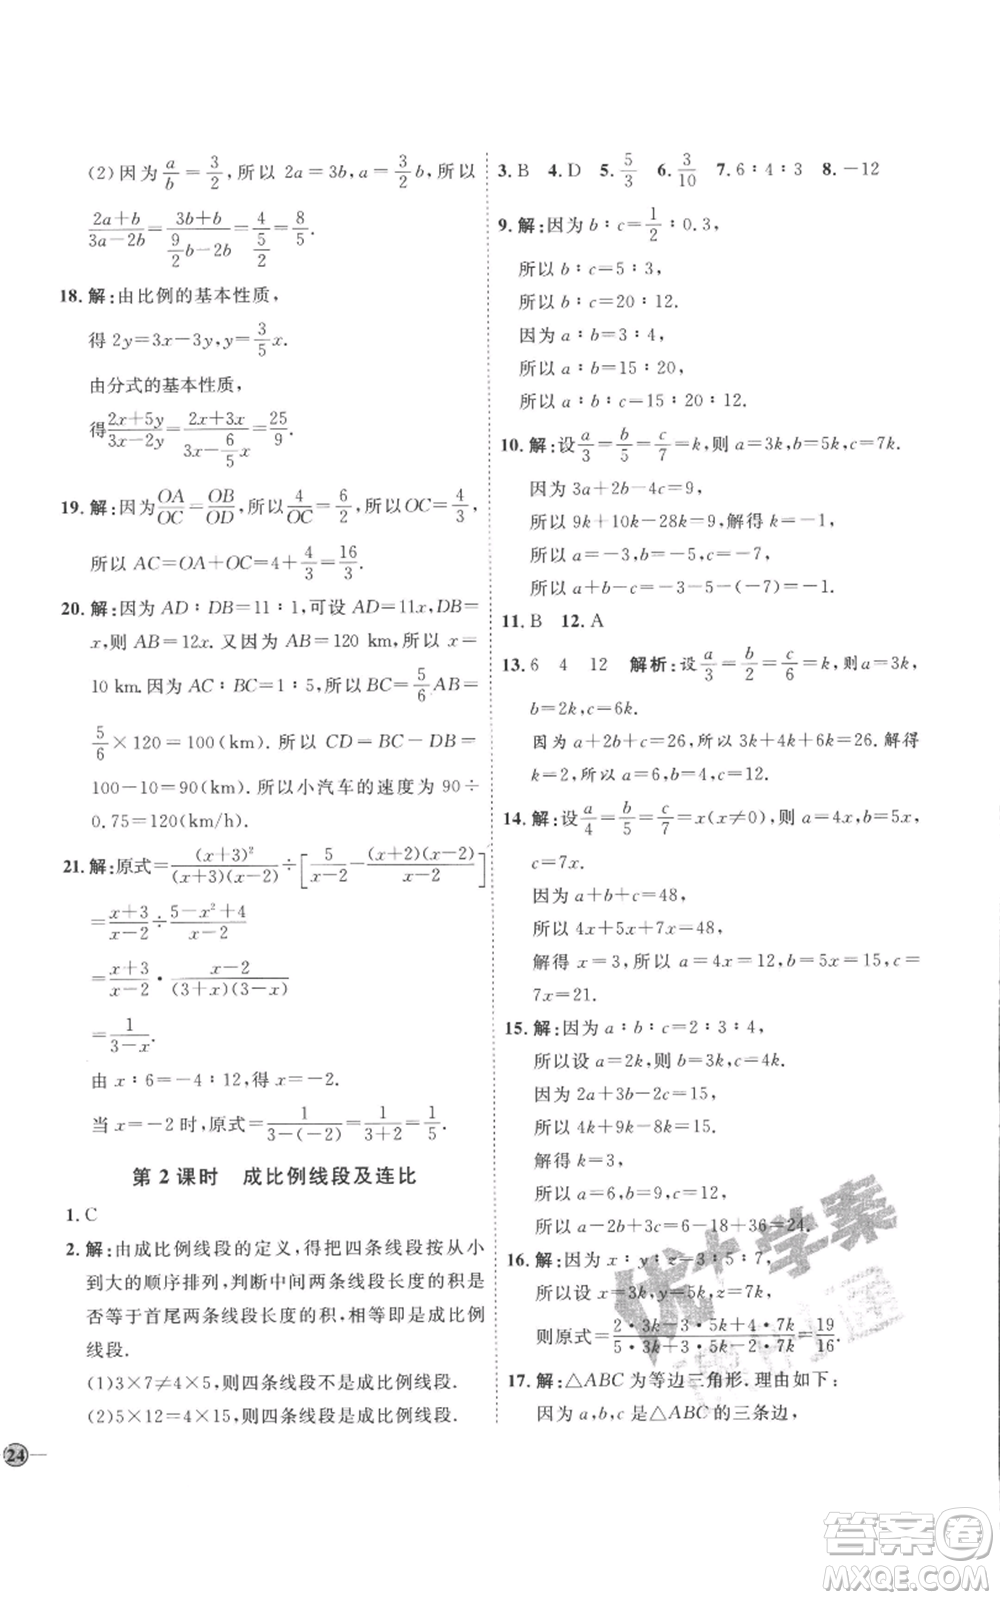 (2)因为a/b=3/2,所以 2a=3b,a=3/2b,所以
(2a+b)/(3a-2b)=(3b+b)/(9/2b-2b)=4/(5/2)=8/5.
18. 解:由比例的基本性质,
得 2y=3x-3y,y=3/5x.
由分式的基本性质,
得(2x+5y)/(3x-2y)=(2x+3x)/(3x-6/5x)=25/9.
19. 解:因为OA/OC=OB/OD,所以4/OC=6/2,所以OC=4/3,
所以 AC=OA+OC=4+4/3=16/3.
20. 解:因为 AD∶DB=11∶1,可设 AD=11x,DB=
x,则 AB=12x. 又因为 AB=120 km,所以 x=
10 km.因为 AC∶BC=1∶5,所以 BC=5/6AB=
5/6×120=100(km). 所以 CD=BC-DB=
100-10=90(km). 所以小汽车的速度为 90÷
0.75=120(km/h).
21. 解:原式=(x+3)²/((x+3)(x-2))÷[5/(x-2)-(x+2)(x-2)/(x-2)]
=(x+3)/(x-2)÷(5-x²+4)/(x-2)
=(x+3)/(x-2)·(x-2)/((3+x)(3-x))
=1/(3-x).
由 x∶6=-4∶12,得 x=-2.
当 x=-2 时,原式=1/(3-(-2))=1/(3+2)=1/5.
第 2 课时 成比例线段及连比
1. C
2. 解:由成比例线段的定义,得把四条线段按从小
到大的顺序排列,判断中间两条线段长度的积是
否等于首尾两条线段长度的积,相等即是成比例
线段.
(1)3×7≠4×5,则四条线段不是成比例线段.
(2)5×12=4×15,则四条线段是成比例线段.
24
3. B 4. D 5. 5/3 6. 3/10 7. 6∶4∶3 8. -12
9. 解:因为 b∶c=1/2∶0.3,
所以 b∶c=5∶3,
所以 b∶c=20∶12.
因为 a∶b=3∶4,
所以 a∶b=15∶20,
所以 a∶b∶c=15∶20∶12.
10. 解:设a/3=b/5=c/7=k,则 a=3k,b=5k,c=7k.
因为 3a+2b-4c=9,
所以 9k+10k-28k=9,解得 k=-1,
所以 a=-3,b=-5,c=-7,
所以 a+b-c=-3-5-(-7)=-1.
11. B 12. A
13. 6 4 12 解析:设a/3=b/2=c/6=k,则 a=3k,
b=2k,c=6k.
因为 a+2b+c=26,所以 3k+4k+6k=26. 解得
k=2. 所以 a=6,b=4,c=12.
14. 解:设a/4=b/5=c/7=x(x≠0),则 a=4x,b=5x,
c=7x.
因为 a+b+c=48,
所以 4x+5x+7x=48,
解得 x=3,所以 a=4x=12,b=5x=15,c=
7x=21.
15. 解:因为 a∶b∶c=2∶3∶4,
所以设 a=2k,则 b=3k,c=4k.
因为 2a+3b-2c=15,
所以 4k+9k-8k=15,
解得 k=3.
所以 a=6,b=9,c=12.
所以 a-2b+3c=6-18+36=24.
16. 解:因为 x∶y∶z=3∶5∶7,
所以设 x=3k,y=5k,z=7k,
则原式=(2·3k-3·5k+4·7k)/(5·3k+3·5k-2·7k)=19/16.
17. 解:△ABC 为等边三角形. 理由如下:
因为 a,b,c 是△ABC 的三条边,
优+学案
答案圈
MXQE.COM